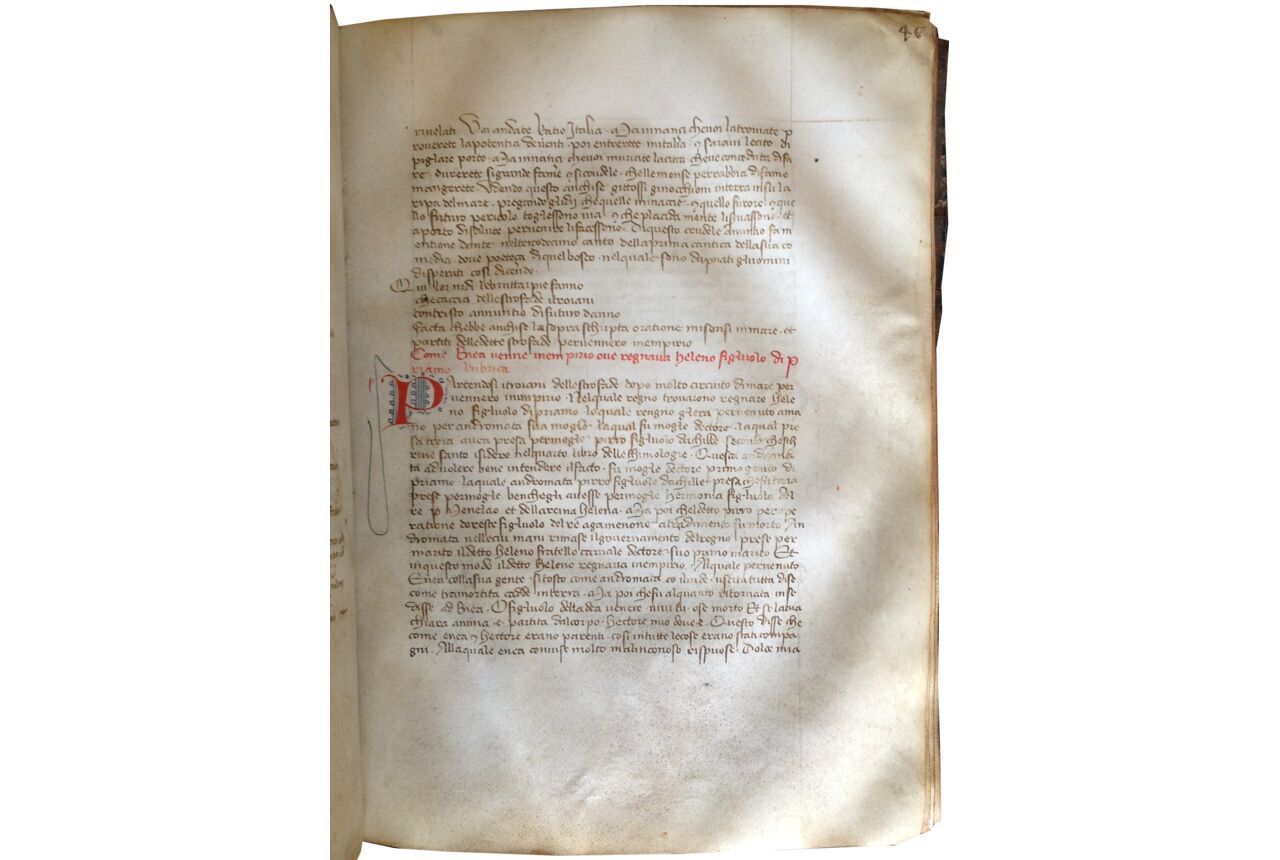 46
rivelati Voi andate verso Italia. Ma innanzi che voi la troviate p
roverete la potentia de venti. poi enterrete in italia. et saravi lecito di
pigliare porto. Ma innanzi che voi muriate la citta che ve conceduta
re. durerete si grande fame et si crudele. che lle mense per rabbia di fame
mangerete Udendo questo anchise gittossi ginocchioni in terra in su la
ripa del mare. pregando gl idij che quelle minaccie. et quello furore et que
llo futuro pericolo toglessono via. et che placida mente li salvassono. et
a porto di salute pervenire li facessono. Di questo crudele annuntio fa m
entione dante nel terzodecimo canto della prima cantica della sua co
media. dove poeteça di quel bosco. nel quale sono dapnati gl uomini
disperati cosi dicendo.
Quivi lor nidi le brutte arpie fanno
che caccia delle strofade i troiani
con tristo annuntio di futuro danno
Facta chebbe anchise la sopra scripta oratione misonsi in mare. et
partiti delle dette strofade pervennero in empirio
Come Enea venne in empirio ove regnava heleno figluolo di p
riamo Rubrica
PArtendosi i troiani delle strofade dopo molto circuito di mare per
vennero in empirio. Nel quale regno trovarono regnare hele
no figluolo di priamo lo quale rengno gl era pervenuto a ma
no per andromata sua mogle. la qual fu mogle dectore. la qual pre
sa troia avea presa per mogle pirro figluolo dachille. secondo che sch
rive santo isidero nel quarto libro delle ethimologie. Questa androma
ta ad volere bene intendere il facto. fu mogle dectore primo genito di
priamo. la quale andromata pirro figluolo dachille. presa
prese per mogle benche gli avesse per mogle hermonia figluola del
re Menelao et della reina helena. Ma poi che l detto pirro per ope
ratione doreste figluolo del re agamenone a tradimento fu morto An
dromata nelle cui mani rimase il governamento del regno. prese per
marito il detto heleno fratello carnale dectore. suo primo marito Et
in questo modo il detto heleno regnava in empirio. Al quale pervenuto
Enea colla sua gente. si tosto come andromata co lui vide. uscita tutta di se
come tramortita cadde in terra. Ma poi che fu alquanto ritornata in se
disse ad Enea. O figluolo della dea venere. vivi tu. o se morto Et se la tua
chiara anima. e. partita dal corpo. Hectore mio dove e. Questo disse che
come enea et Hectore erano parenti. cosi in tutte le cose erano stati compa
gni. Alla quale enea come molto malinconoso rispuose. Dolce mia